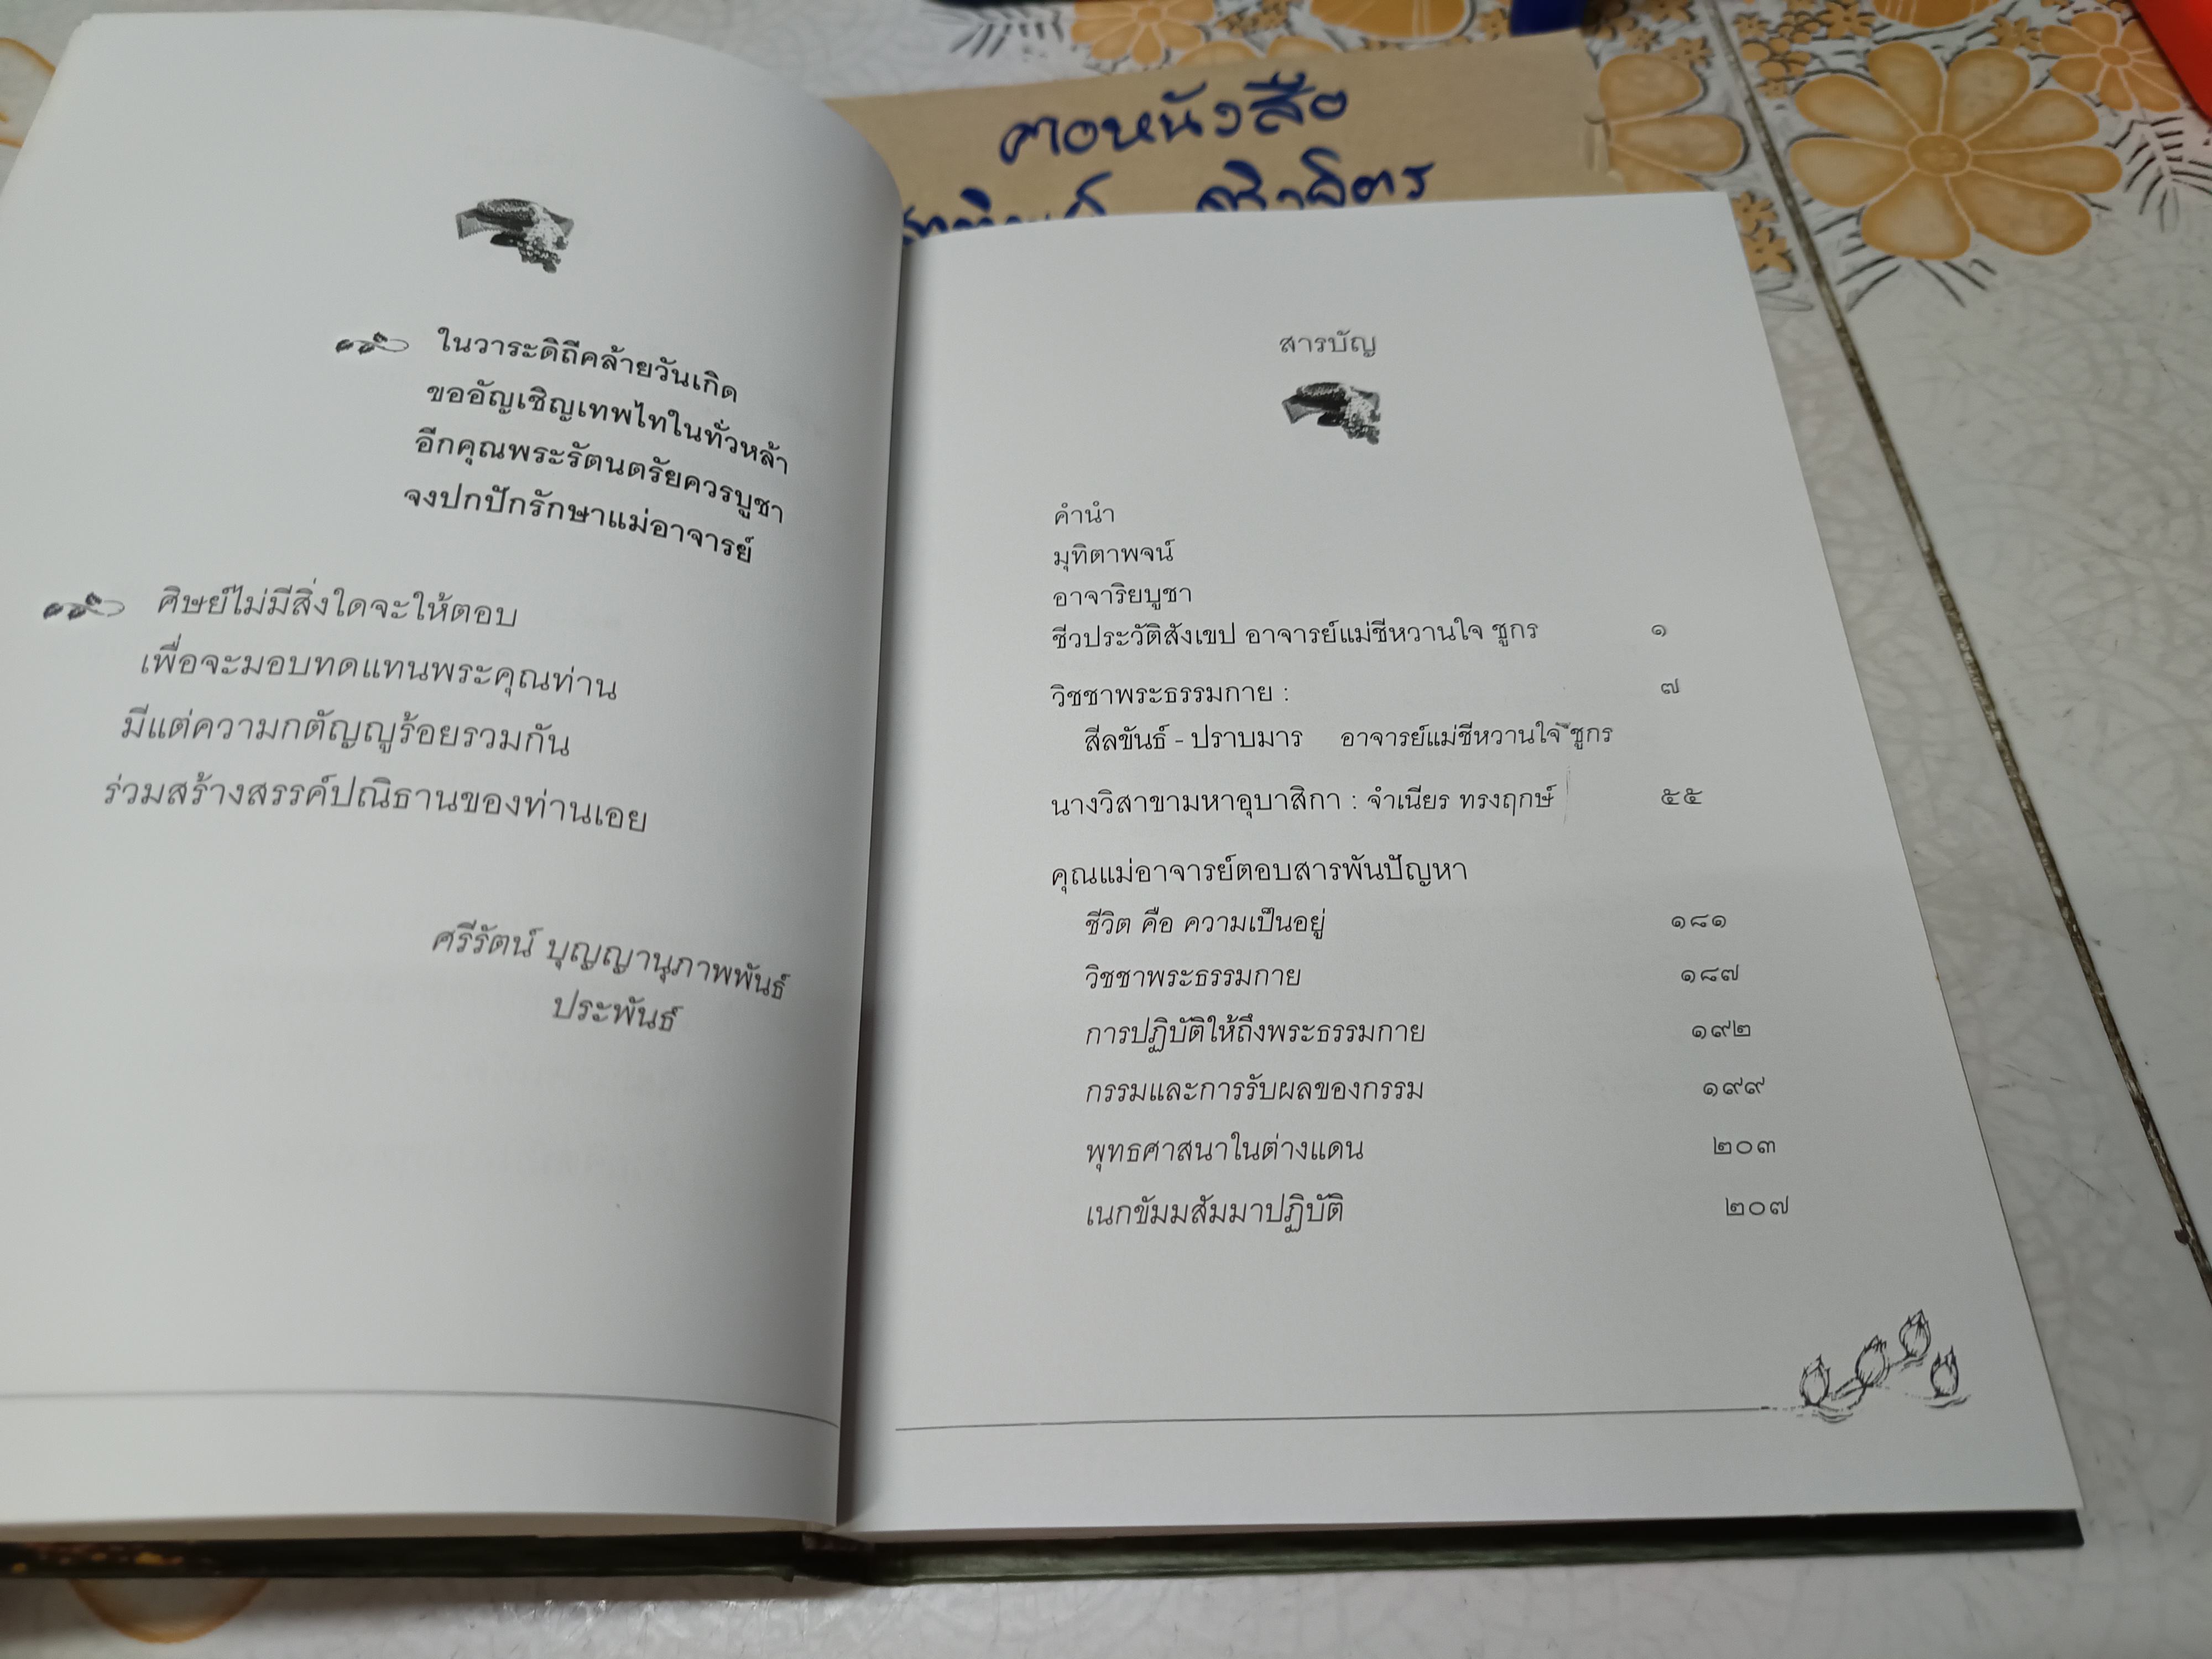 คอหนังสือ
ในวาระดิถีคล้ายวันเกิด
ขออัญเชิญเทพไทในทั่วหล้า
อีกคุณพระรัตนตรัยควรบูชา
จงปกปักรักษาแม่อาจารย์
ศิษย์ไม่มีสิ่งใดจะให้ตอบ
เพื่อจะมอบทดแทนพระคุณท่าน
มีแต่ความกตัญญูร้อยรวมกัน
ร่วมสร้างสรรค์ปณิธานของท่านเอย
ศรีรัตน์ บุญญานุภาพพันธ์
ประพันธ์
สารบัญ
คำนำ
มุทิตาพจน์
อาจาริยบูชา
ชีวประวัติสังเขป อาจารย์แม่ชีหวานใจ ชูกร ๑
วิชชาพระธรรมกาย : ๗
สีลขันธ์ - ปราบมาร อาจารย์แม่ชีหวานใจ ชูกร
นางวิสาขามหาอุบาสิกา : จำเนียร ทรงฤกษ์ ๕๕
คุณแม่อาจารย์ตอบสารพันปัญหา
ชีวิต คือ ความเป็นอยู่ ๑๘๑
วิชชาพระธรรมกาย ๑๘๗
การปฏิบัติให้ถึงพระธรรมกาย ๑๙๒
กรรมและการรับผลของกรรม ๑๙๙
พุทธศาสนาในต่างแดน ๒๐๓
เนกขัมมสัมมาปฏิบัติ ๒๐๗